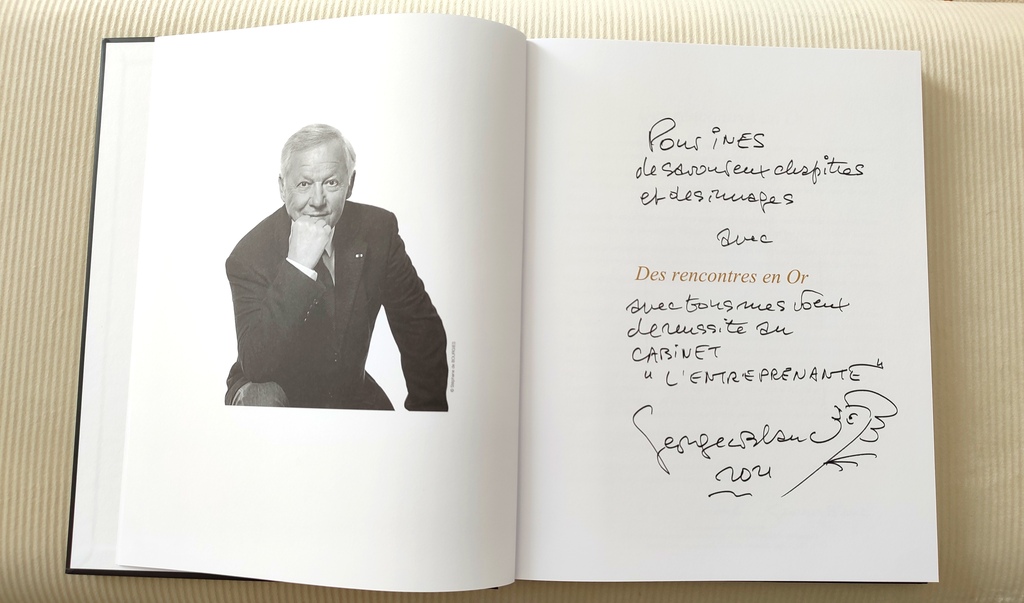 © Stéphane de BOURGIES
Pour iNES
de savoureux chapitres
et des images
avec
Des rencontres en Or
avec tous mes voeux
de reussite au
CABiNET
" L'ENTREPRENANTE "
Georges Blanc
2021